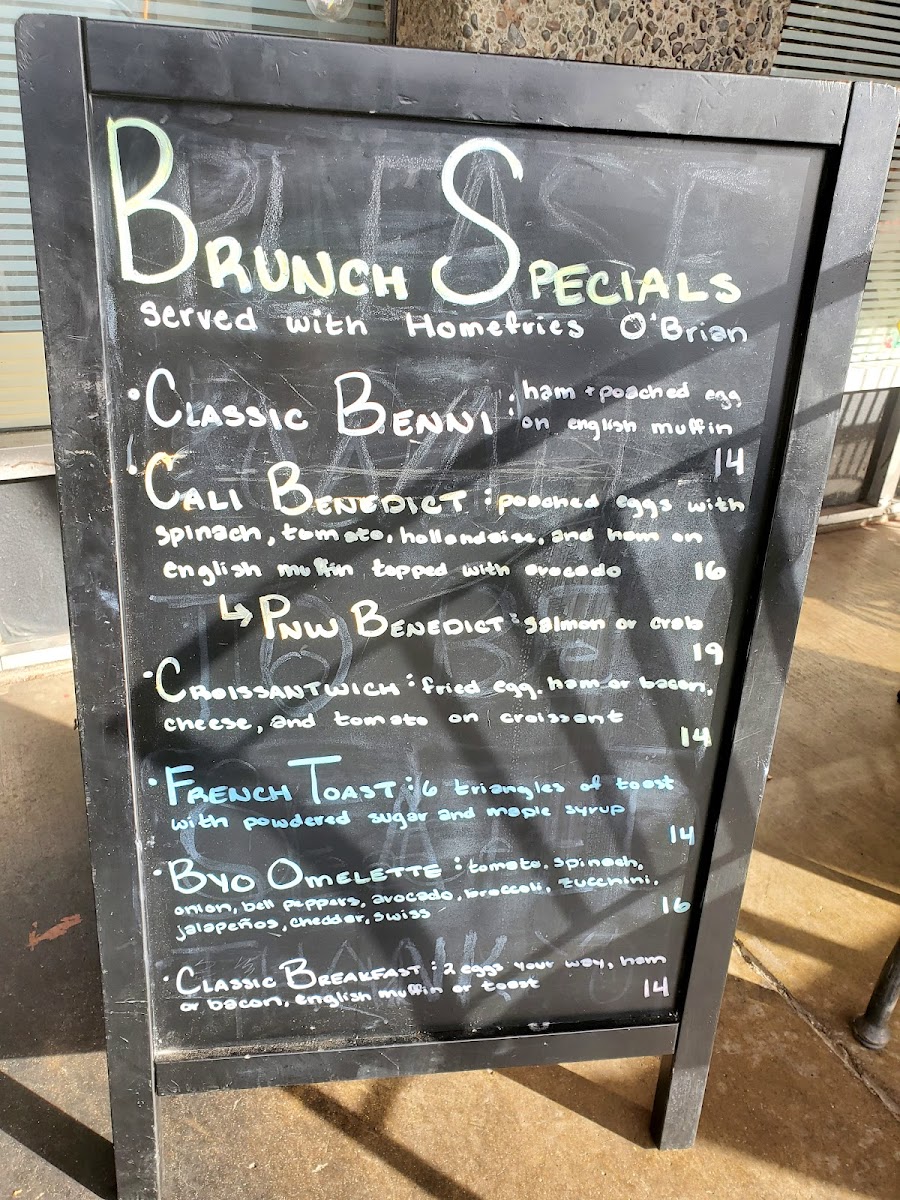 BRUNCH SPECIALS
served with Homefries O'Brian
• CLASSIC BENNI : ham + poached egg
on english muffin
14
• CALI BENEDICT : poached eggs with
spinach, tomato, hollandaise, and ham on
english muffin topped with avocado 16
↳ PNW BENEDICT : salmon or crab
19
• CROISSANTWICH : fried egg, ham or bacon,
cheese, and tomato on croissant
14
• FRENCH TOAST : 6 triangles of toast
with powdered sugar and maple syrup
14
• BYO OMELETTE : tomato, spinach,
onion, bell peppers, avocado, broccoli, zucchini,
jalapeños, cheddar, swiss 16
• CLASSIC BREAKFAST : 2 eggs your way, ham
or bacon, english muffin or toast 14
PLEASE
WAIT
TO BE
SEATED
THANK